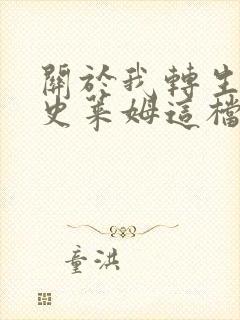 關於我轉生
史萊姆這檔
童洪